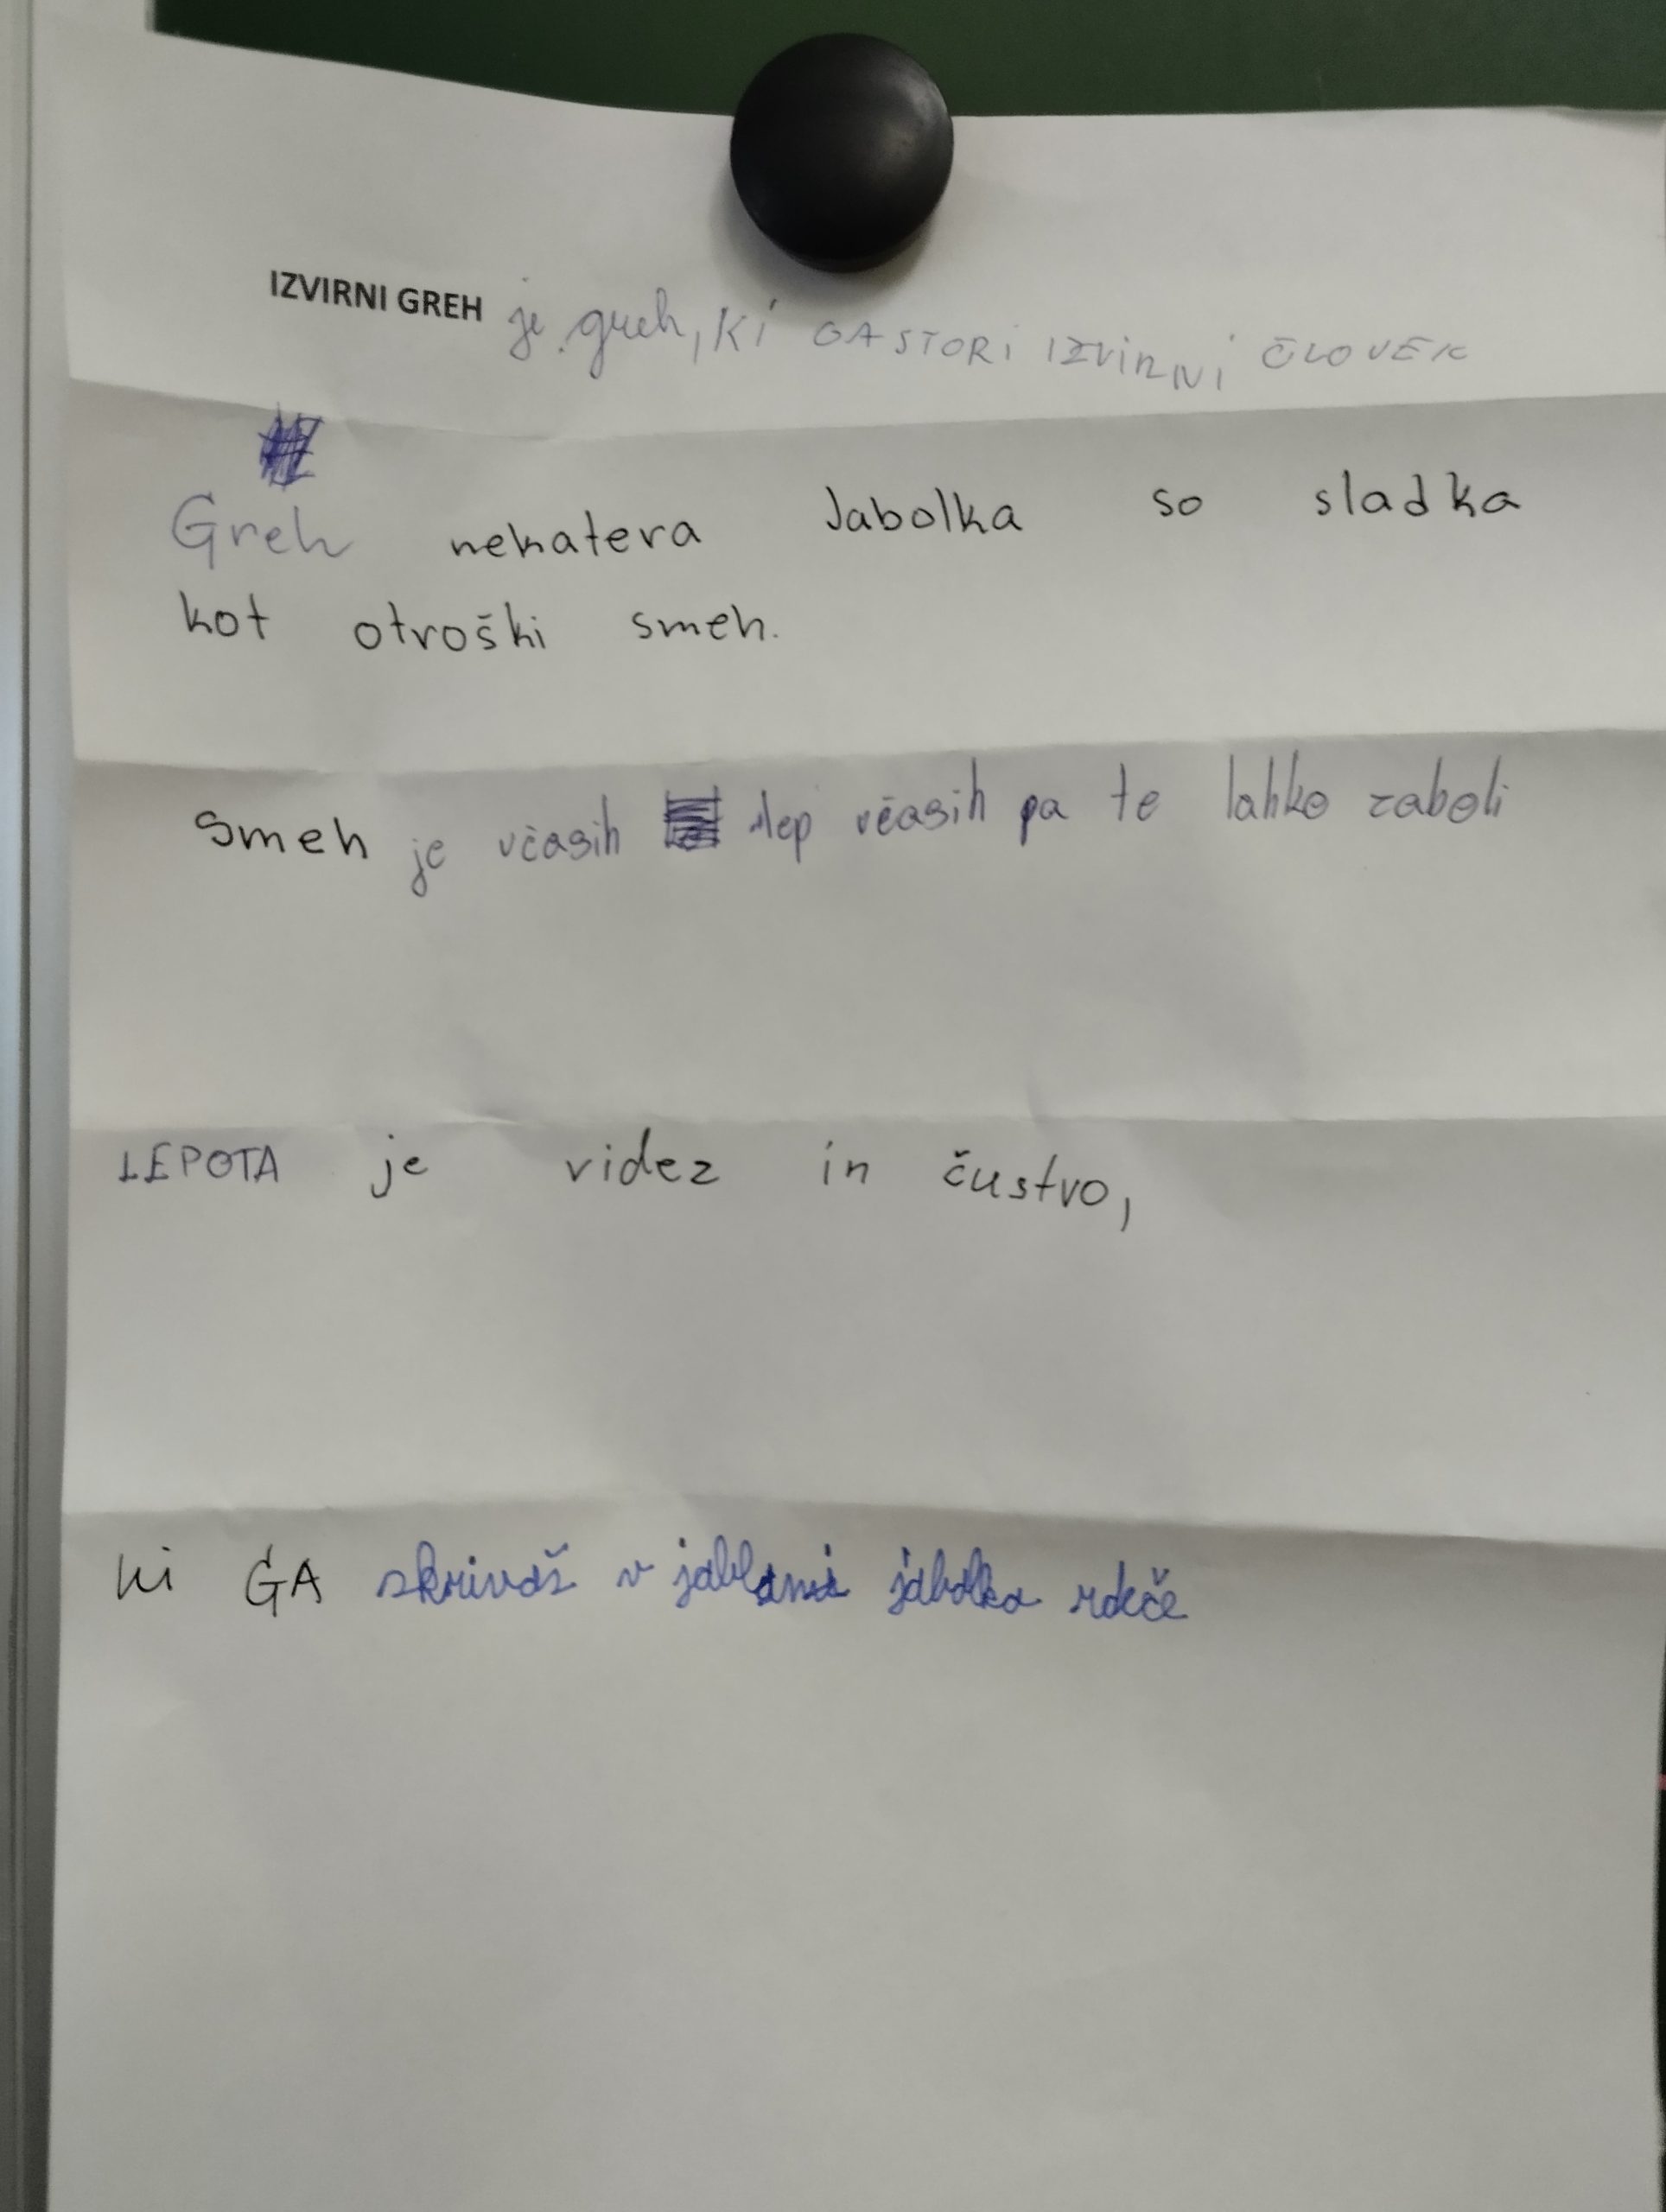 IZVIRNI GREH je greh, ki GA STORI IZVIRNI ČLOVEK
Greh nekatera Jabolka so sladka
kot otroški smeh.
Smeh je včasih lep včasih pa te lahko zaboli
LEPOTA je videz in čustvo,
ki GA skrivaš v jablani jabolka rdeče